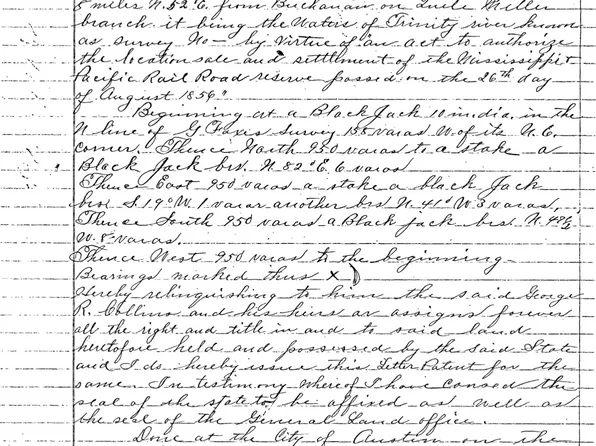 miles N. 52° E. from Buchanan on Quile Miller
branch it being the Waters of Trinity river known
as survey No — by virtue of an act to authorize
the location sale and settlement of the Mississippi &
Pacific Rail Road reserve passed on the 26th day
of August 1856"
Beginning at a Black Jack 10 in dia. in the
N line of G. Fox's survey 155 varas W. of its N. E.
corner. Thence North 950 varas to a stake a
Black Jack brs. N. 82° E. 6 varas
Thence East 950 varas a stake a black Jack
brs. S. 19° W. 1 varas another brs N. 41° W 3 varas,
Thence South 950 varas a Black jack brs. N. 48½
W. 8 varas.
Thence West 950 varas to the beginning-
Bearings marked thus X
Hereby relinquishing to him the said George
R. Collins and his heirs or assigns forever
all the right and title in and to said land
heretofore held and possessed by the said State
and I do hereby issue this Letter Patent for the
same. In testimony whereof I have caused the
seal of the state to be affixed as well as
the seal of the General Land office.
Done at the City of Austin on the